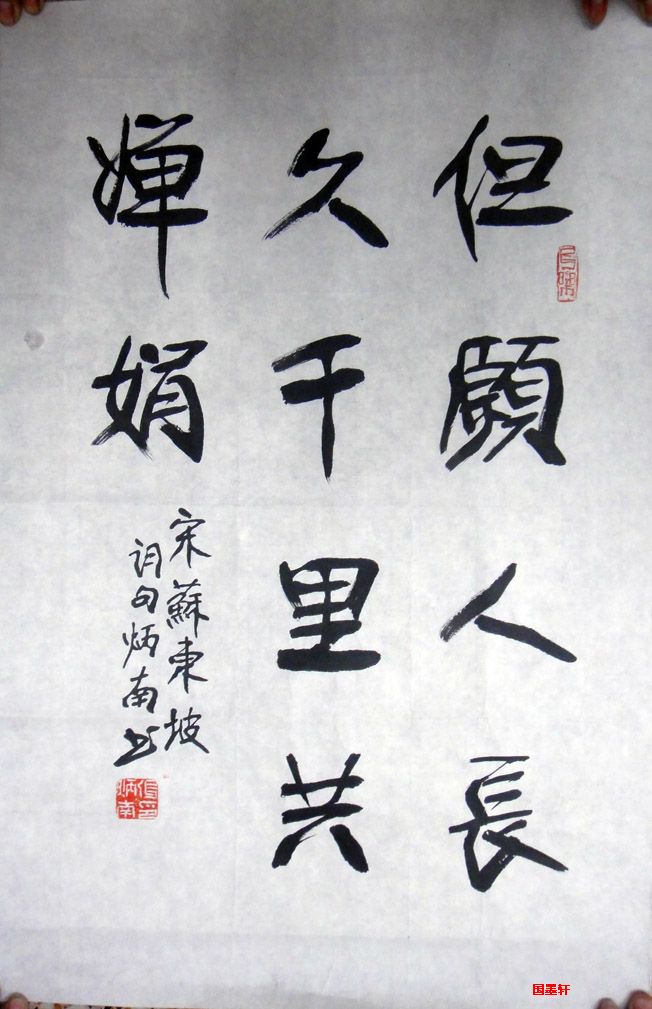 但願人長
久千里共
嬋娟
宋蘇東坡
詞句炳南书
国墨轩